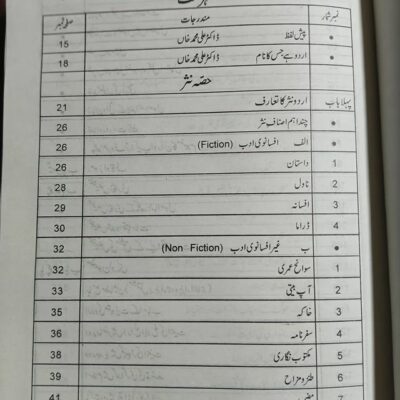 نمبر شمار مندرجات صفحہ نمبر
● پیش لفظ ڈاکٹر علی محمد خاں 15
● اردو ہے جس کا نام ڈاکٹر علی محمد خاں 18
حصّہ نثر
پہلا باب اردو نثر کا تعارف 21
● چند اہم اصنافِ نثر 26
● الف افسانوی ادب (Fiction) 26
1 داستان 26
2 ناول 28
3 افسانہ 29
4 ڈراما 30
● ب غیر افسانوی ادب (Non Fiction) 32
1 سوانح عمری 32
2 آپ بیتی 33
3 خاکہ 35
4 سفرنامہ 36
5 مکتوب نگاری 38
6 طنز و مزاح 39
7 41